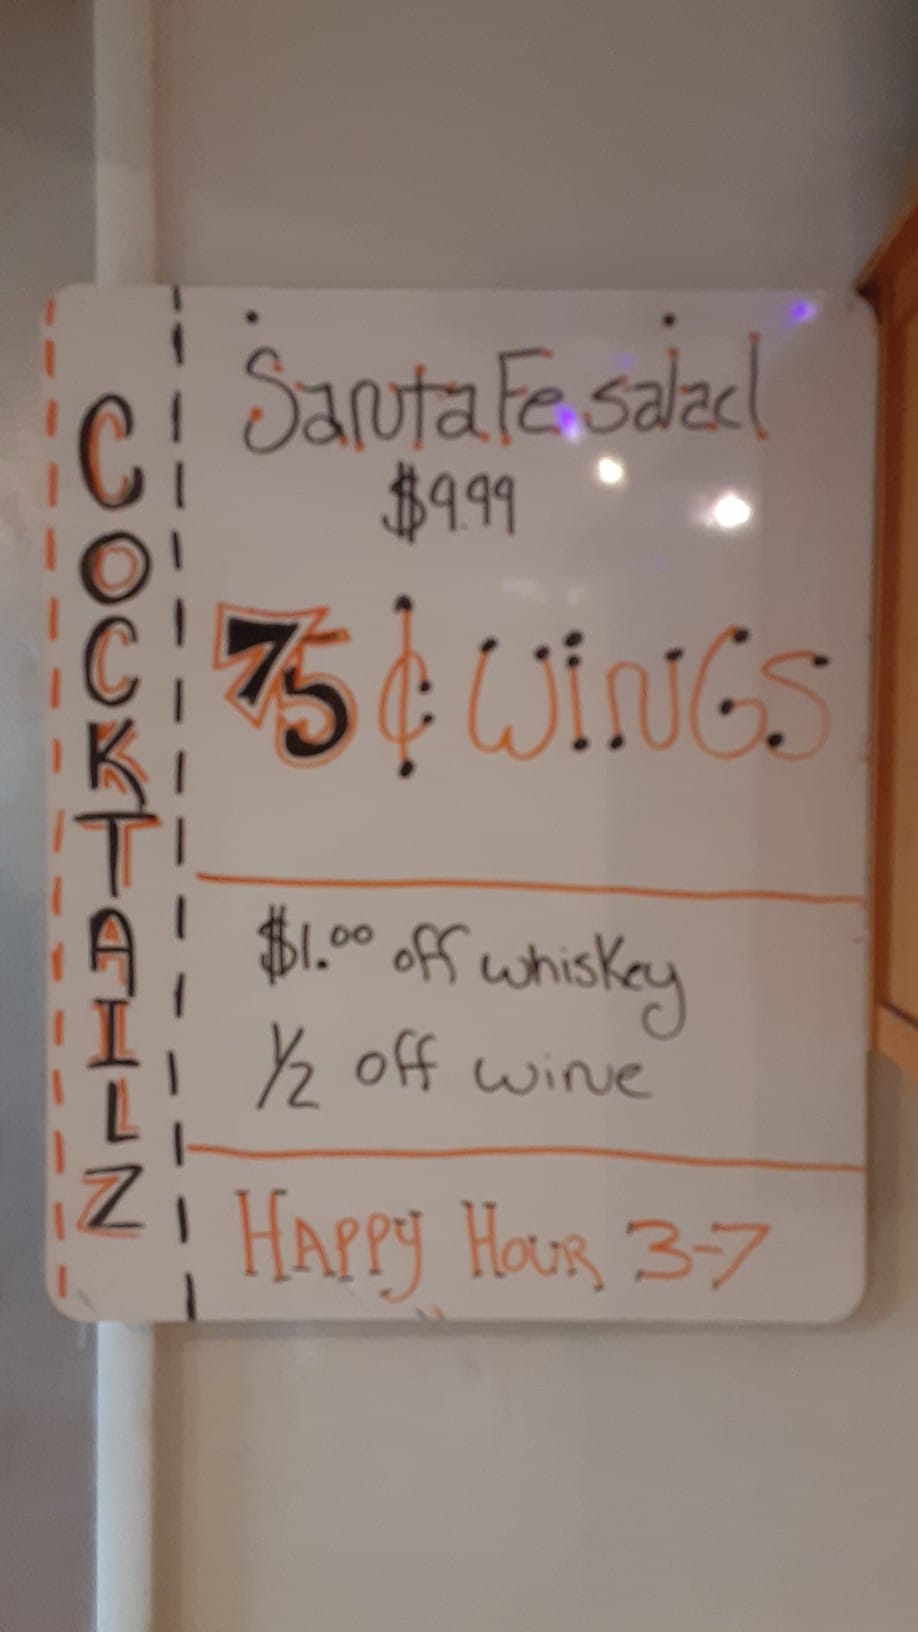 COCKTAILZ
Santa Fe salad
$9.99
75¢ WiNGS
$1.00 off whiskey
1/2 off wine
HAPPy HOUR 3-7